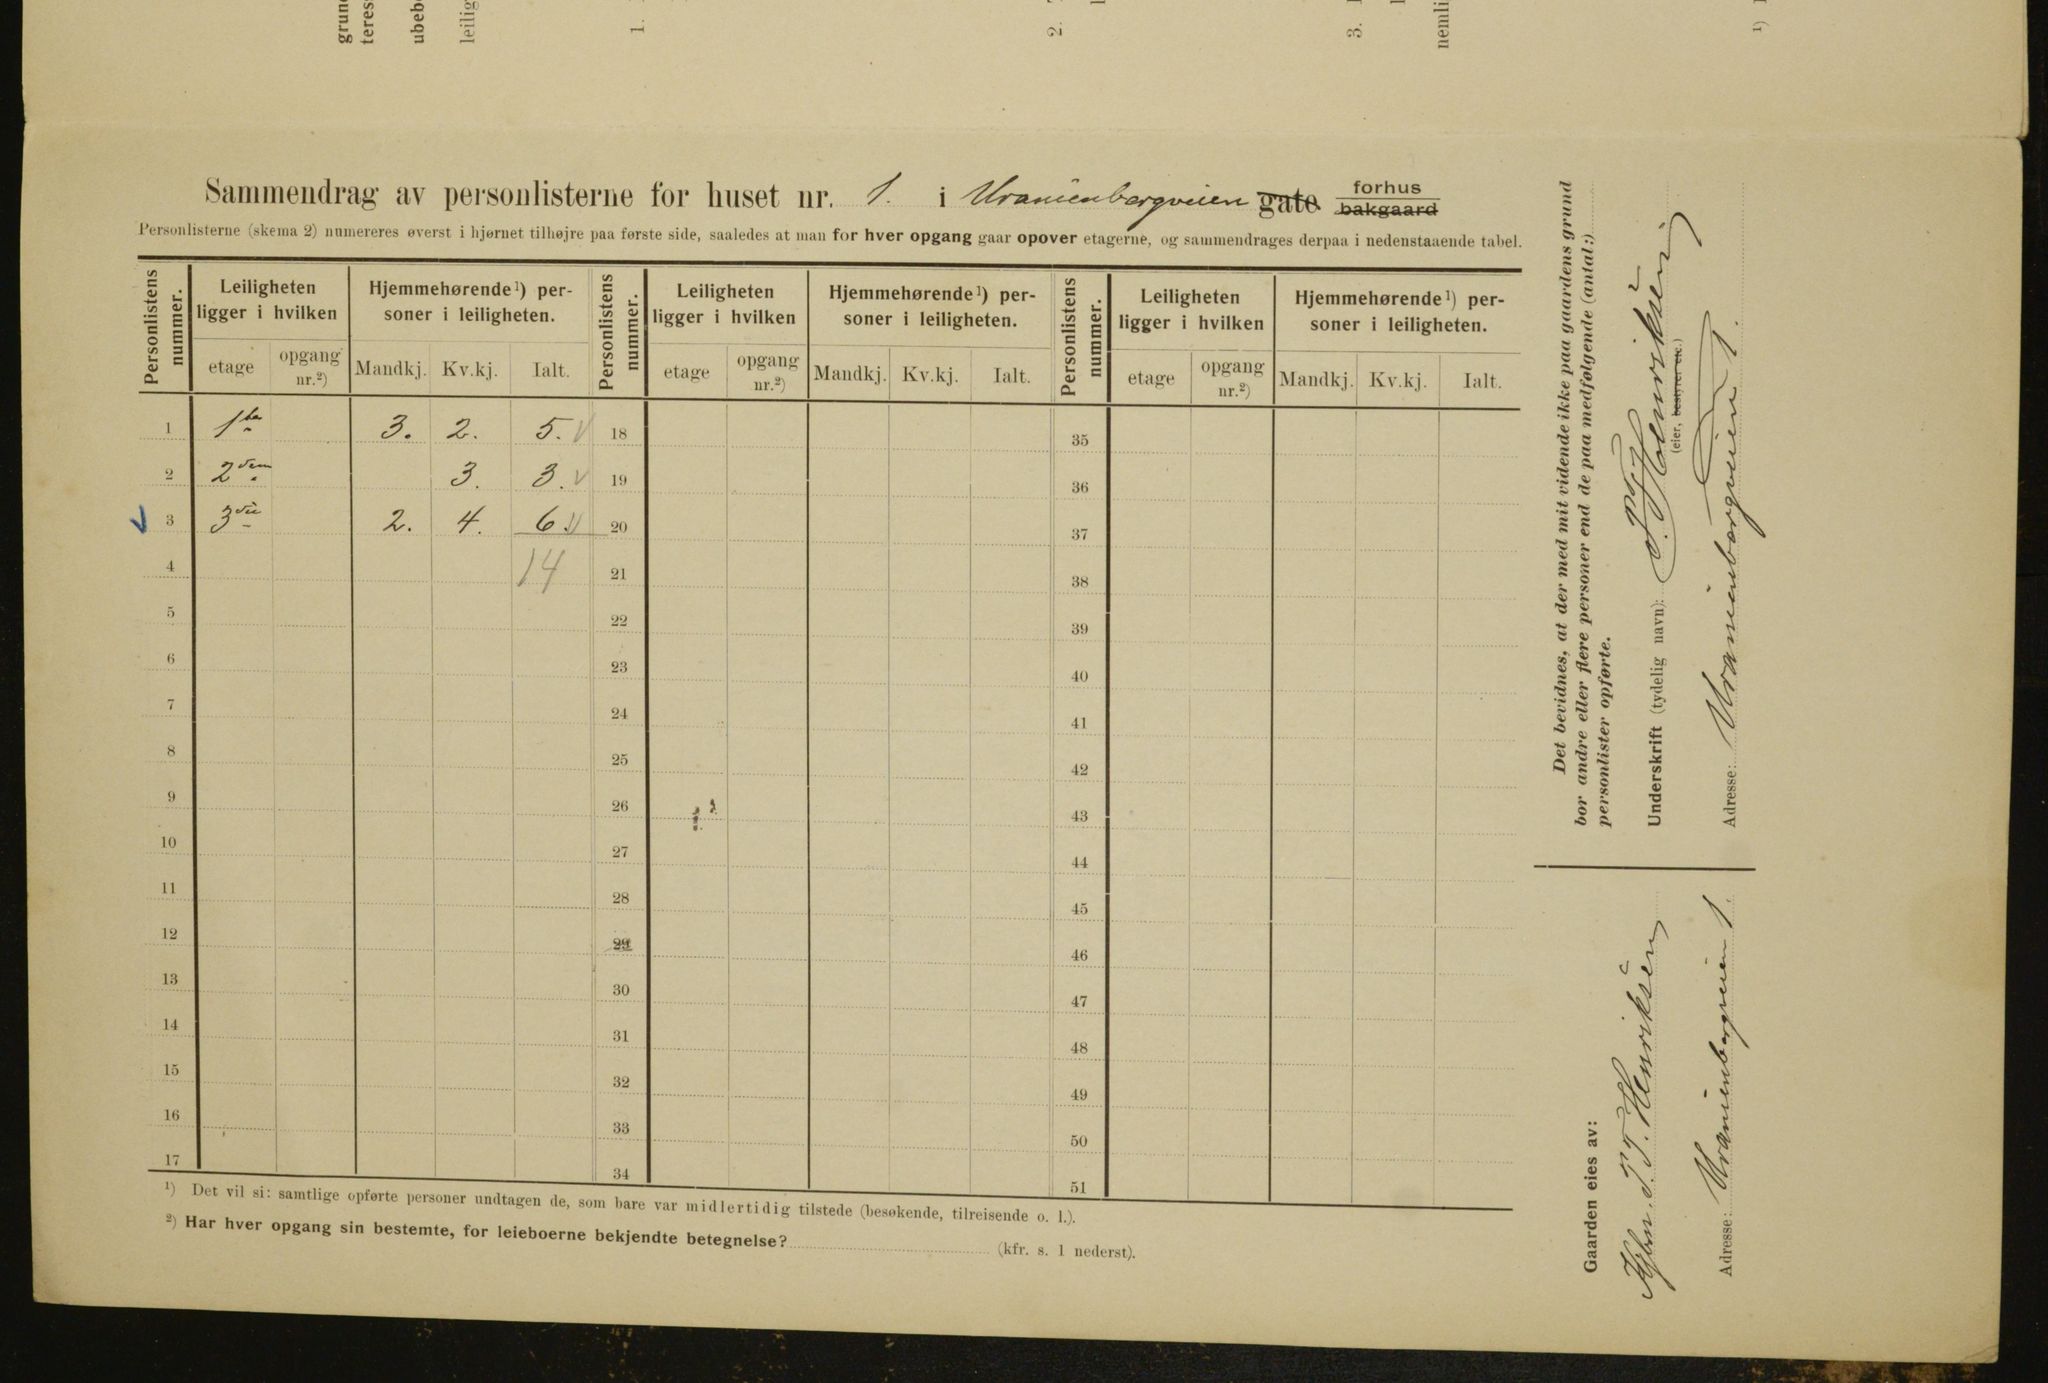 grund
teres
ubebo
leilig
1.
2.
3.
nemli
1)
Sammendrag av personlisterne for huset nr. 1. i Uranienborgveien gate. forhus bakgaard
Personlisterne (skema 2) numereres øverst i hjørnet tilhøjre paa første side, saaledes at man for hver opgang gaar opover etagerne, og sammendrages derpaa i nedenstaaende tabel.
Personlistens nummer. Leiligheten ligger i hvilken Hjemmehørende 1) personer i leiligheten. Personlistens nummer. Leiligheten ligger i hvilken Hjemmehørende 1) personer i leiligheten. Personlistens nummer. Leiligheten ligger i hvilken Hjemmehørende 1) personer i leiligheten.
etage opgang nr.2) Mandkj. Kv.kj. Ialt. etage opgang nr.2) Mandkj. Kv.kj. Ialt. etage opgang nr.2) Mandkj. Kv.kj. Ialt.
1 1ste 3. 2. 5. 18 35
2 2den 3. 3. 19 36
3 3die 2. 4. 6. 20 37
4 14 21 38
5 22 39
6 23 40
7 24 41
8 25 42
9 26 43
10 27 44
11 28 45
12 29 46
13 30 47
14 31 48
15 32 49
16 33 50
17 34 51
1) Det vil si: samtlige opførte personer undtagen de, som bare var midlertidig tilstede (besøkende, tilreisende o. l.).
2) Har hver opgang sin bestemte, for leieboerne bekjendte betegnelse? (kfr. s. 1 nederst).
Det bevidnes, at der med mit vidende ikke paa gaardens grund
bor andre eller flere personer end de paa medfølgende (antal:)
personlister opførte.
Underskrift (tydelig navn): T. Henriksen
(eier, bestyrer etc.)
Adresse: Uranienborgveien 1.
Gaarden eies av:
T. Henriksen
Adresse: Uranienborgveien 1.